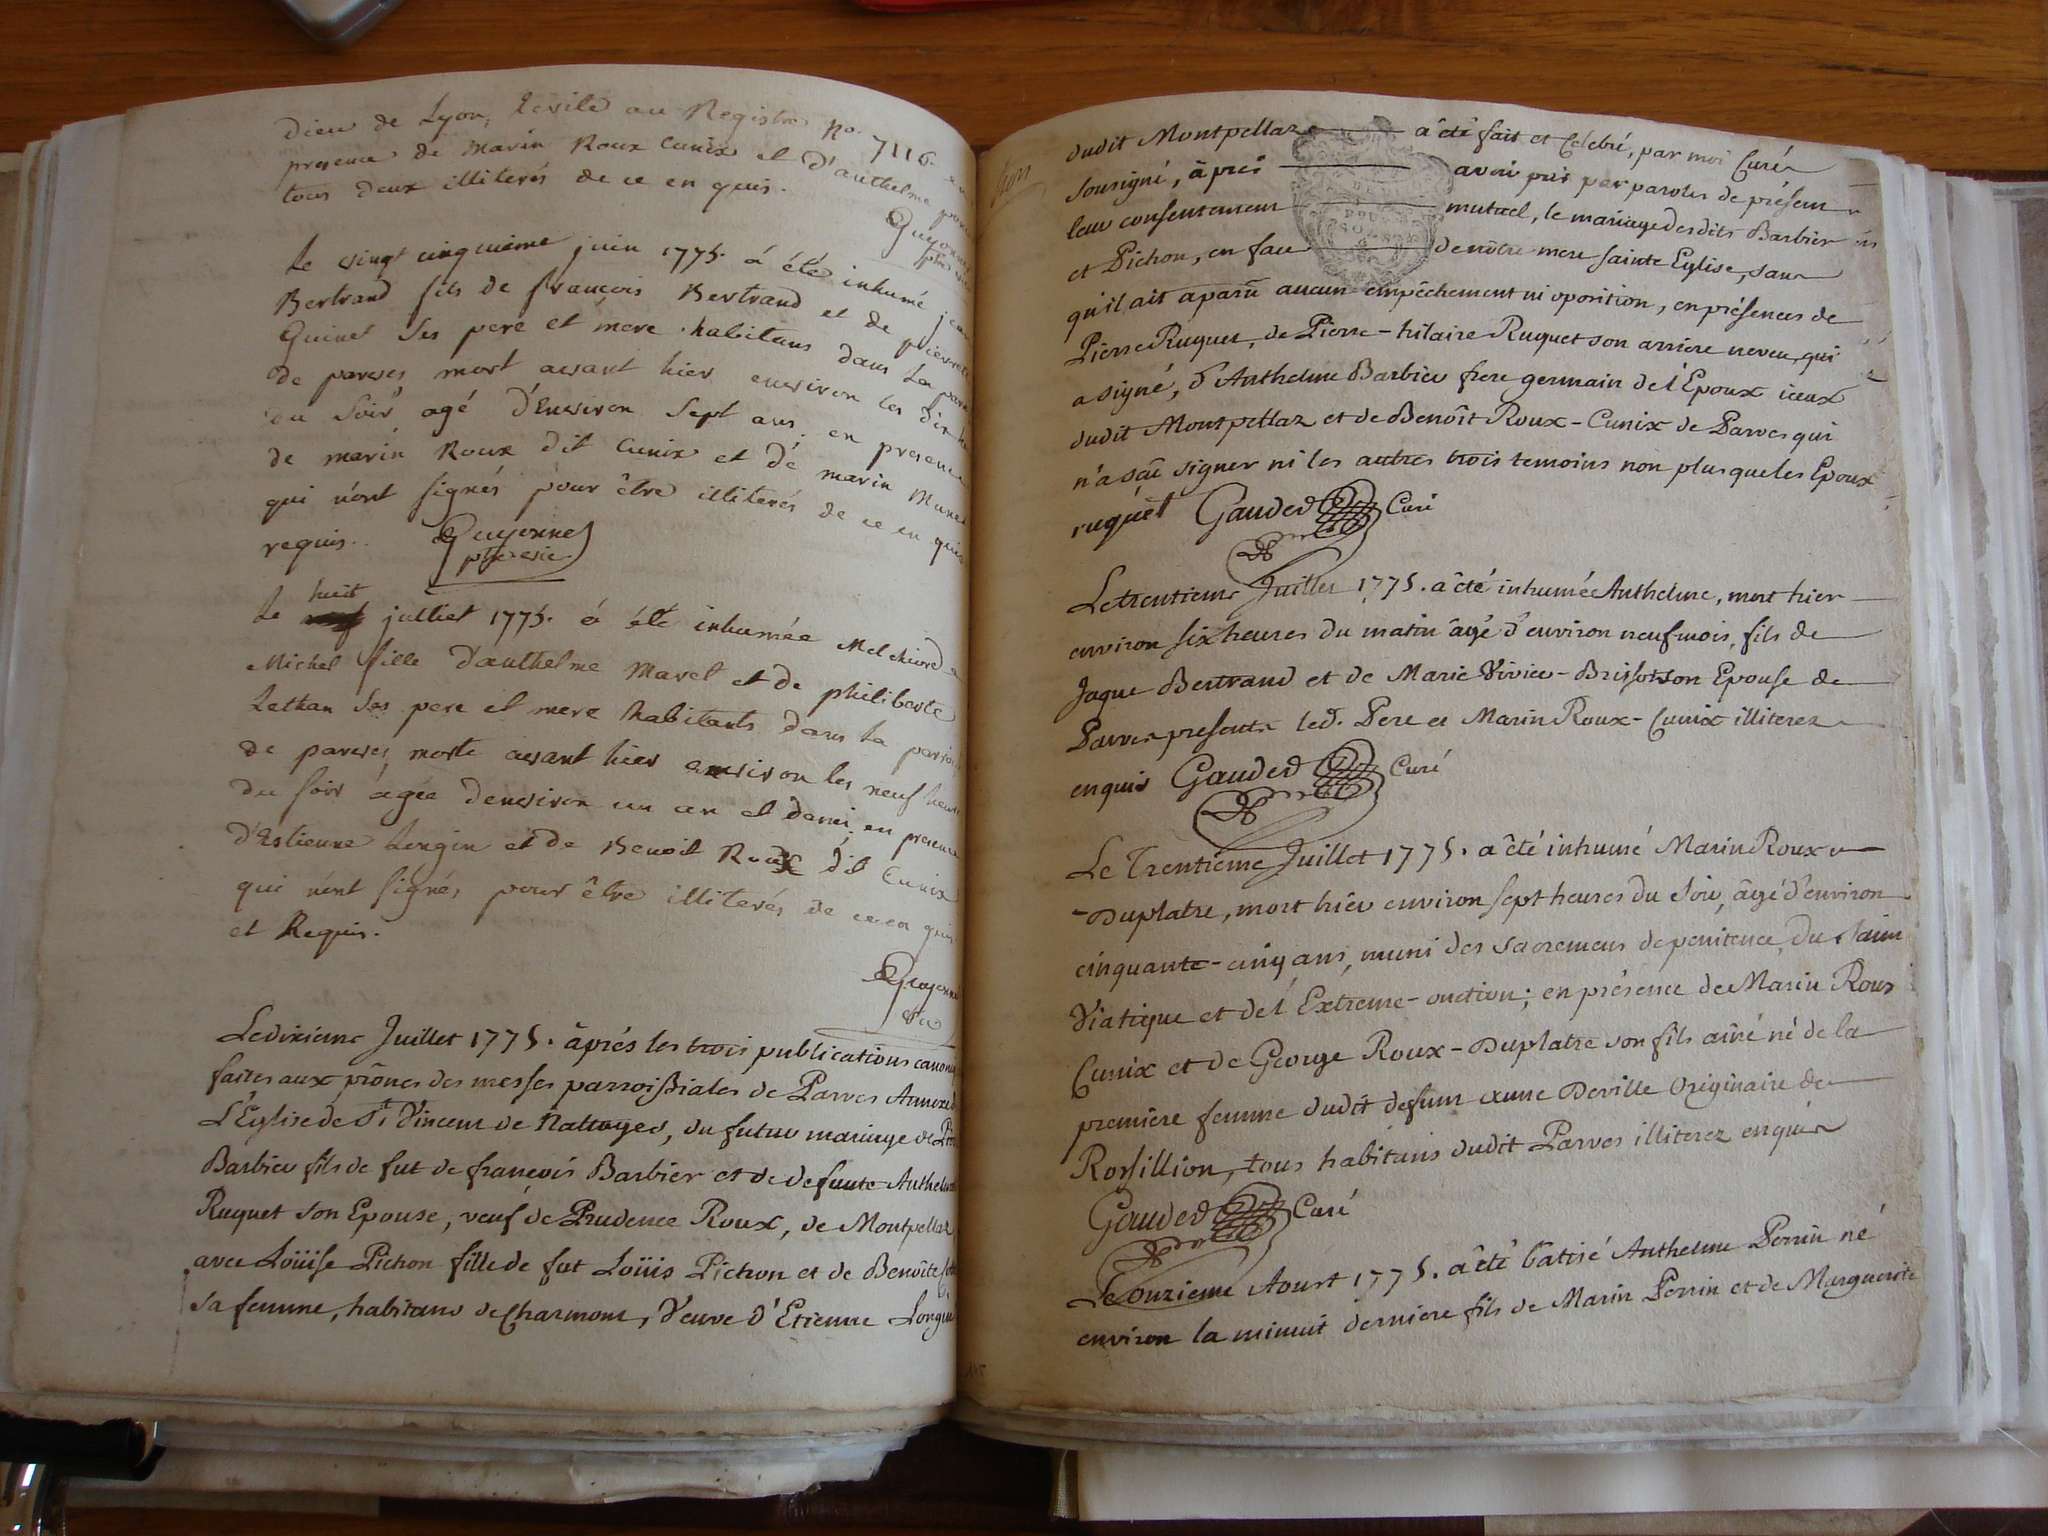 Dieu de Lyon, au Registre No. 7116. en
presence de marin Roux Cunix et d'anthelme
tous deux illiterés de ce en quis.
Guyonne
Le vingt cinquieme juin 1775. á été inhumé jean
Bertrand fils de françois Bertrand et de pierrette
Guinet ses pere et mere habitans dans la paroi
de parves, mort avant hier environ les dix heu
du soir agé d'environ sept ans. en presence
de marin Roux dit Cunix et de marin
qui n'ont signés pour être illiterés de ce en quis
requis. Guyonne
Le huit julliet 1775. á été inhumée Melchiord
Michel fille d'anthelme Maret et de philiberte
Lethan ses pere et mere habitants dans la parroi
de parves, morte avant hier environ les neuf heur
du soir agée d'environ un an et demi, en presence
d'Estienne Longin et de Benoit Roux dit Cunix
qui n'ont signés pour être illiterés de ce en quis
et Requis.
Guyonne
Le dixieme Juillet 1775. àprés les trois publications canoni
faites aux prônes des messes parroissiales de Parves Annexe d
L'Église de St Vincent de Nattages, du futur mariage de Pier
Barbier fils de fut de françois Barbier et de defunte Anthelm
Ruquet son Epouse, veuf de Prudence Roux, de Montpellaz
avec Loüise Pichon fille de fut Loüis Pichon et de Benoîte
sa femme, habitans de Charmont, Veuve d'Etienne Longin
Lyon
dudit Montpellaz a êté fait et célebré, par moi Curé
sousigné, àprés avoir pris par paroles de présent
leur consentement mutuel, le mariage desdits Barbier
et Pichon, en face de nôtre mere sainte Eglise, sans
qu'il ait aparû aucun empêchement ni oposition, en présences de
Pierre Ruquet, de Pierre-hilaire Ruquet son arriere neveu qui
a signé, d'Anthelme Barbier frere germain de l'Epoux iceux
dudit Montpellaz et de Benoît Roux-Cunix de Parves qui
n'a sçû signer ni les autres trois temoins non plus que les Epoux
ruquet Gauded Curé
Le trentieme Juillet 1775. a êté inhumée Anthelme, mort hier
environ six heures du matin âgé d'environ neuf mois, fils de
Jaque Bertrand et de Marie Vivier-Brissot son Epouse de
Parves presents led. Pere et Marin Roux-Cunix illiterez
enquis Gauded Curé
Le Trentiême Juillet 1775. a êté inhumé Marin Roux
-Duplatre, mort hier environ sept heures du soir, âgé d'environ
cinquante-cinq ans, muni des sacremens de penitence, du saint
Viatique et de l'Extreme-onction; en présence de Marin Roux
Cunix et de George Roux-Duplatre son fils aîné né de la
premiere femme dudit defunt exune Deville Originaire de
Rossillion, tous habitans dudit Parves illiterez enquis
Gauded Curé
Le onzieme Aoust 1775. a êté batisé Anthelme Perrin né
environ la minuit derniere fils de Marin Perrin et de Marguerite